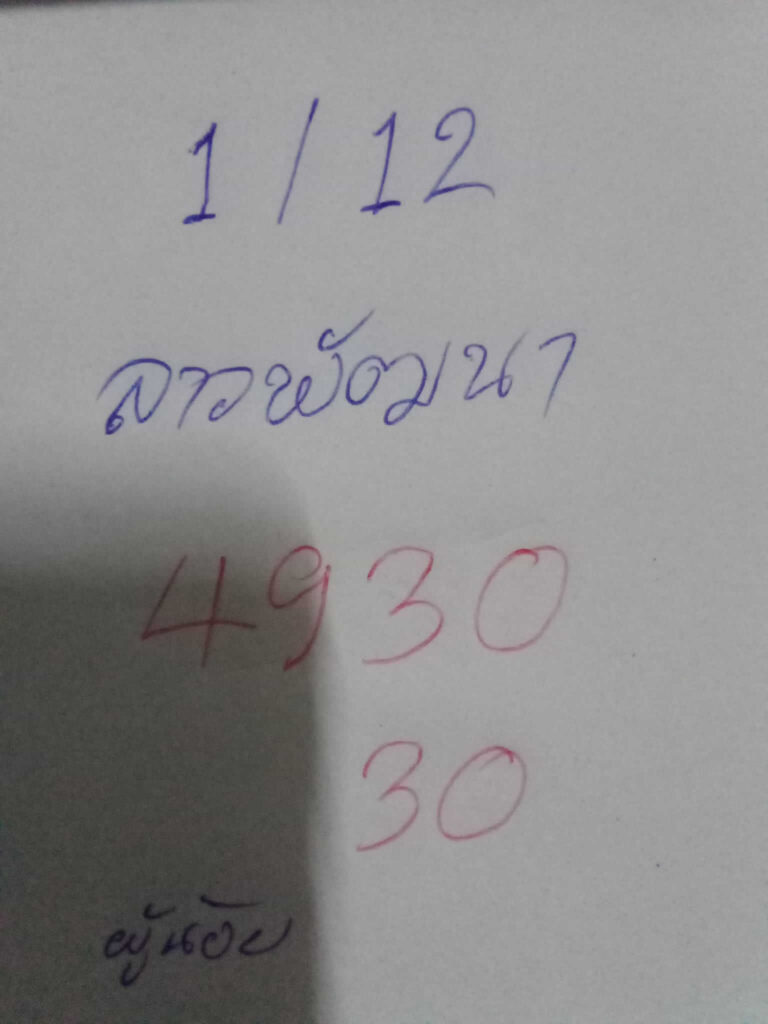 1/12
ลาวพัฒนา
4930
30
ผู้น้อย